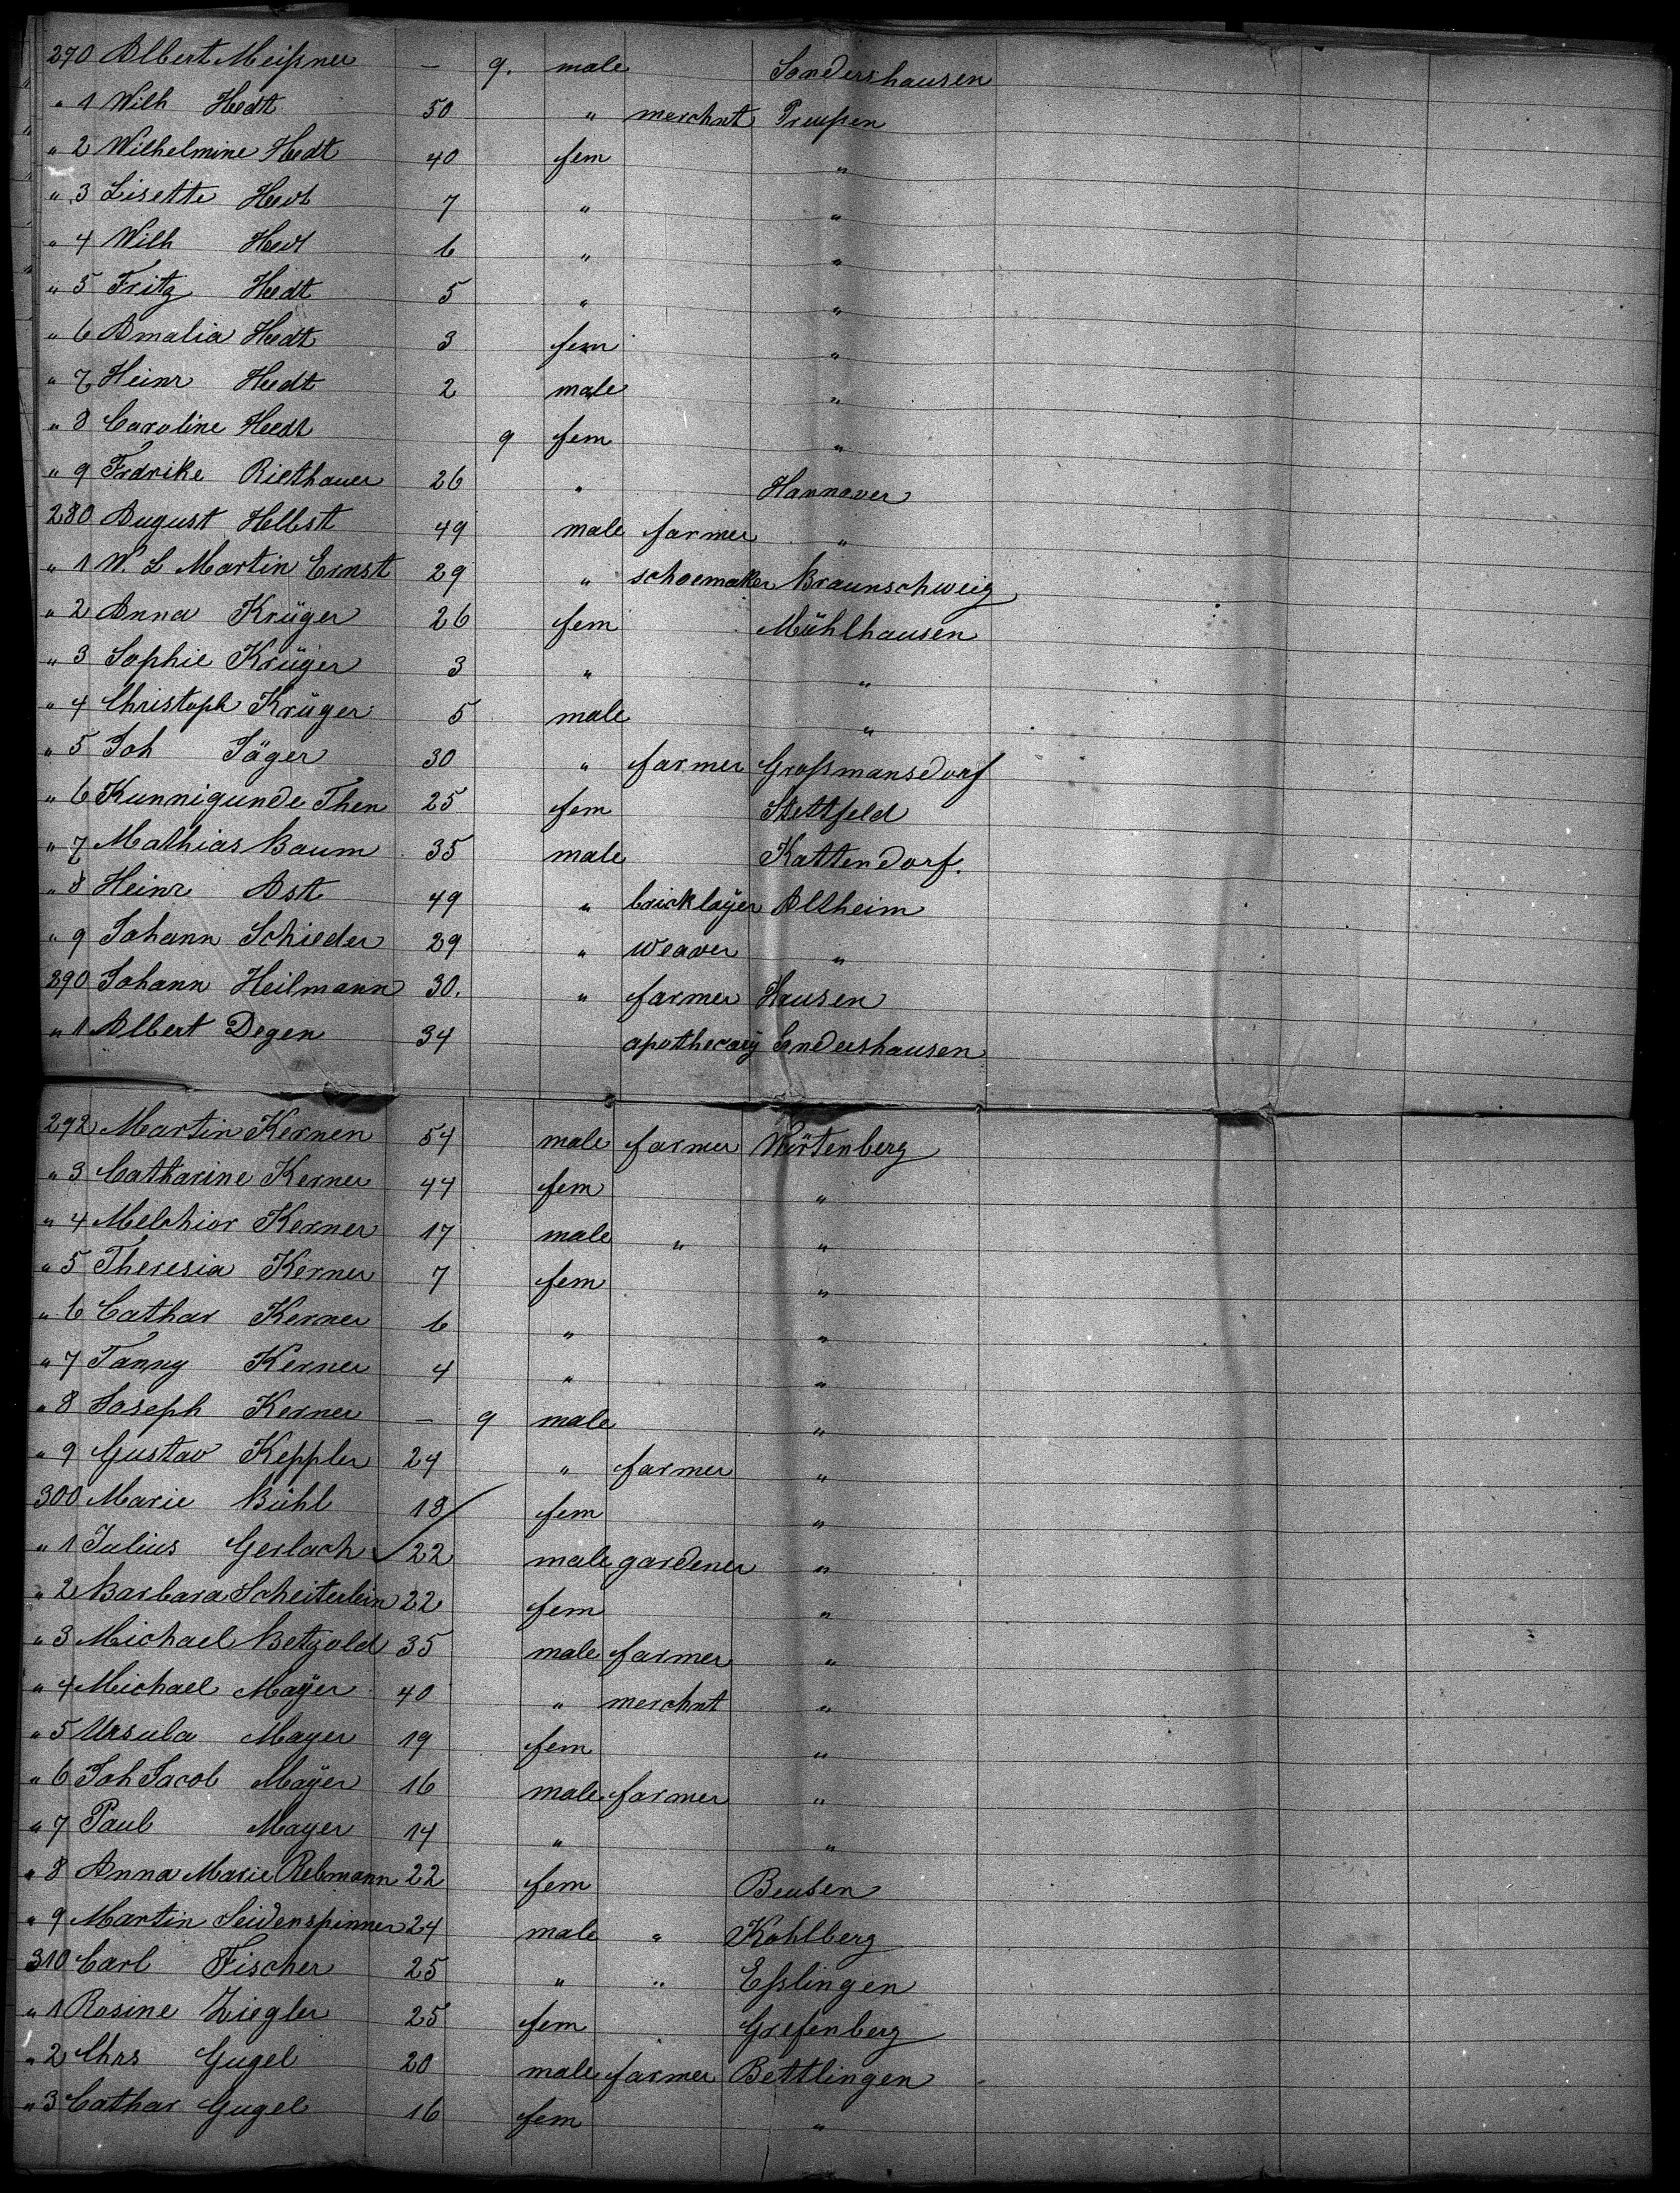 270 Albert Meißner — 9. male Sondershausen
" 1 Wilh Hedt 50 " merchnt Preußen
" 2 Wilhelmine Hedt 40 fem "
" 3 Lisette Hedt 7 " "
" 4 Wilh Hedt 6 " "
" 5 Fritz Hedt 5 " "
" 6 Amalia Hedt 3 fem "
" 7 Heinr Hedt 2 male "
" 8 Caroline Hedt 9 fem "
" 9 Fredrike Riethauer 26 " Hannover
280 August Helbst 49 male farmer "
" 1 W. L Martin Ernst 29 " schoemaker Braunschweig
" 2 Anna Krüger 26 fem Mühlhausen
" 3 Sophie Krüger 3 " "
" 4 Christoph Krüger 5 male "
" 5 Joh Jäger 30 " farmer Großmansdorf
" 6 Kunnigunde Then 25 fem Stettfeld
" 7 Mathias Baum 35 male Kattendorf.
" 8 Heinr Ast 49 " bricklayer Altheim
" 9 Johann Schieder 29 " weaver "
290 Johann Heilmann 30. " farmer Hausen
" 1 Albert Degen 34 apothecary Sondershausen
292 Martin Kernen 54 male farmer Würtenberg
" 3 Catharine Kerner 44 fem "
" 4 Melchior Kerner 17 male " "
" 5 Theresia Kerner 7 fem "
" 6 Cathar Kerner 6 " "
" 7 Fanny Kerner 4 " "
" 8 Joseph Kerner — 9 male "
" 9 Gustav Keppler 24 " farmer "
300 Marie Bühl 18 fem "
" 1 Julius Gerlach 22 male gardener "
" 2 Barbara Scheiterlein 22 fem "
" 3 Michael Betzold 35 male farmer "
" 4 Michael Mayer 40 " merchnt "
" 5 Ursula Mayer 19 fem "
" 6 Joh Jacob Mayer 16 male farmer "
" 7 Paul Mayer 14 " "
" 8 Anna Marie Rebmann 22 fem Beusen
" 9 Martin Seidenspinner 24 male " Kohlberg
310 Carl Fischer 25 " " Eßlingen
" 1 Rosine Ziegler 25 fem Grefenberg
" 2 Chrs Gugel 20 male farmer Bettlingen
" 3 Cathar Gugel 16 fem "